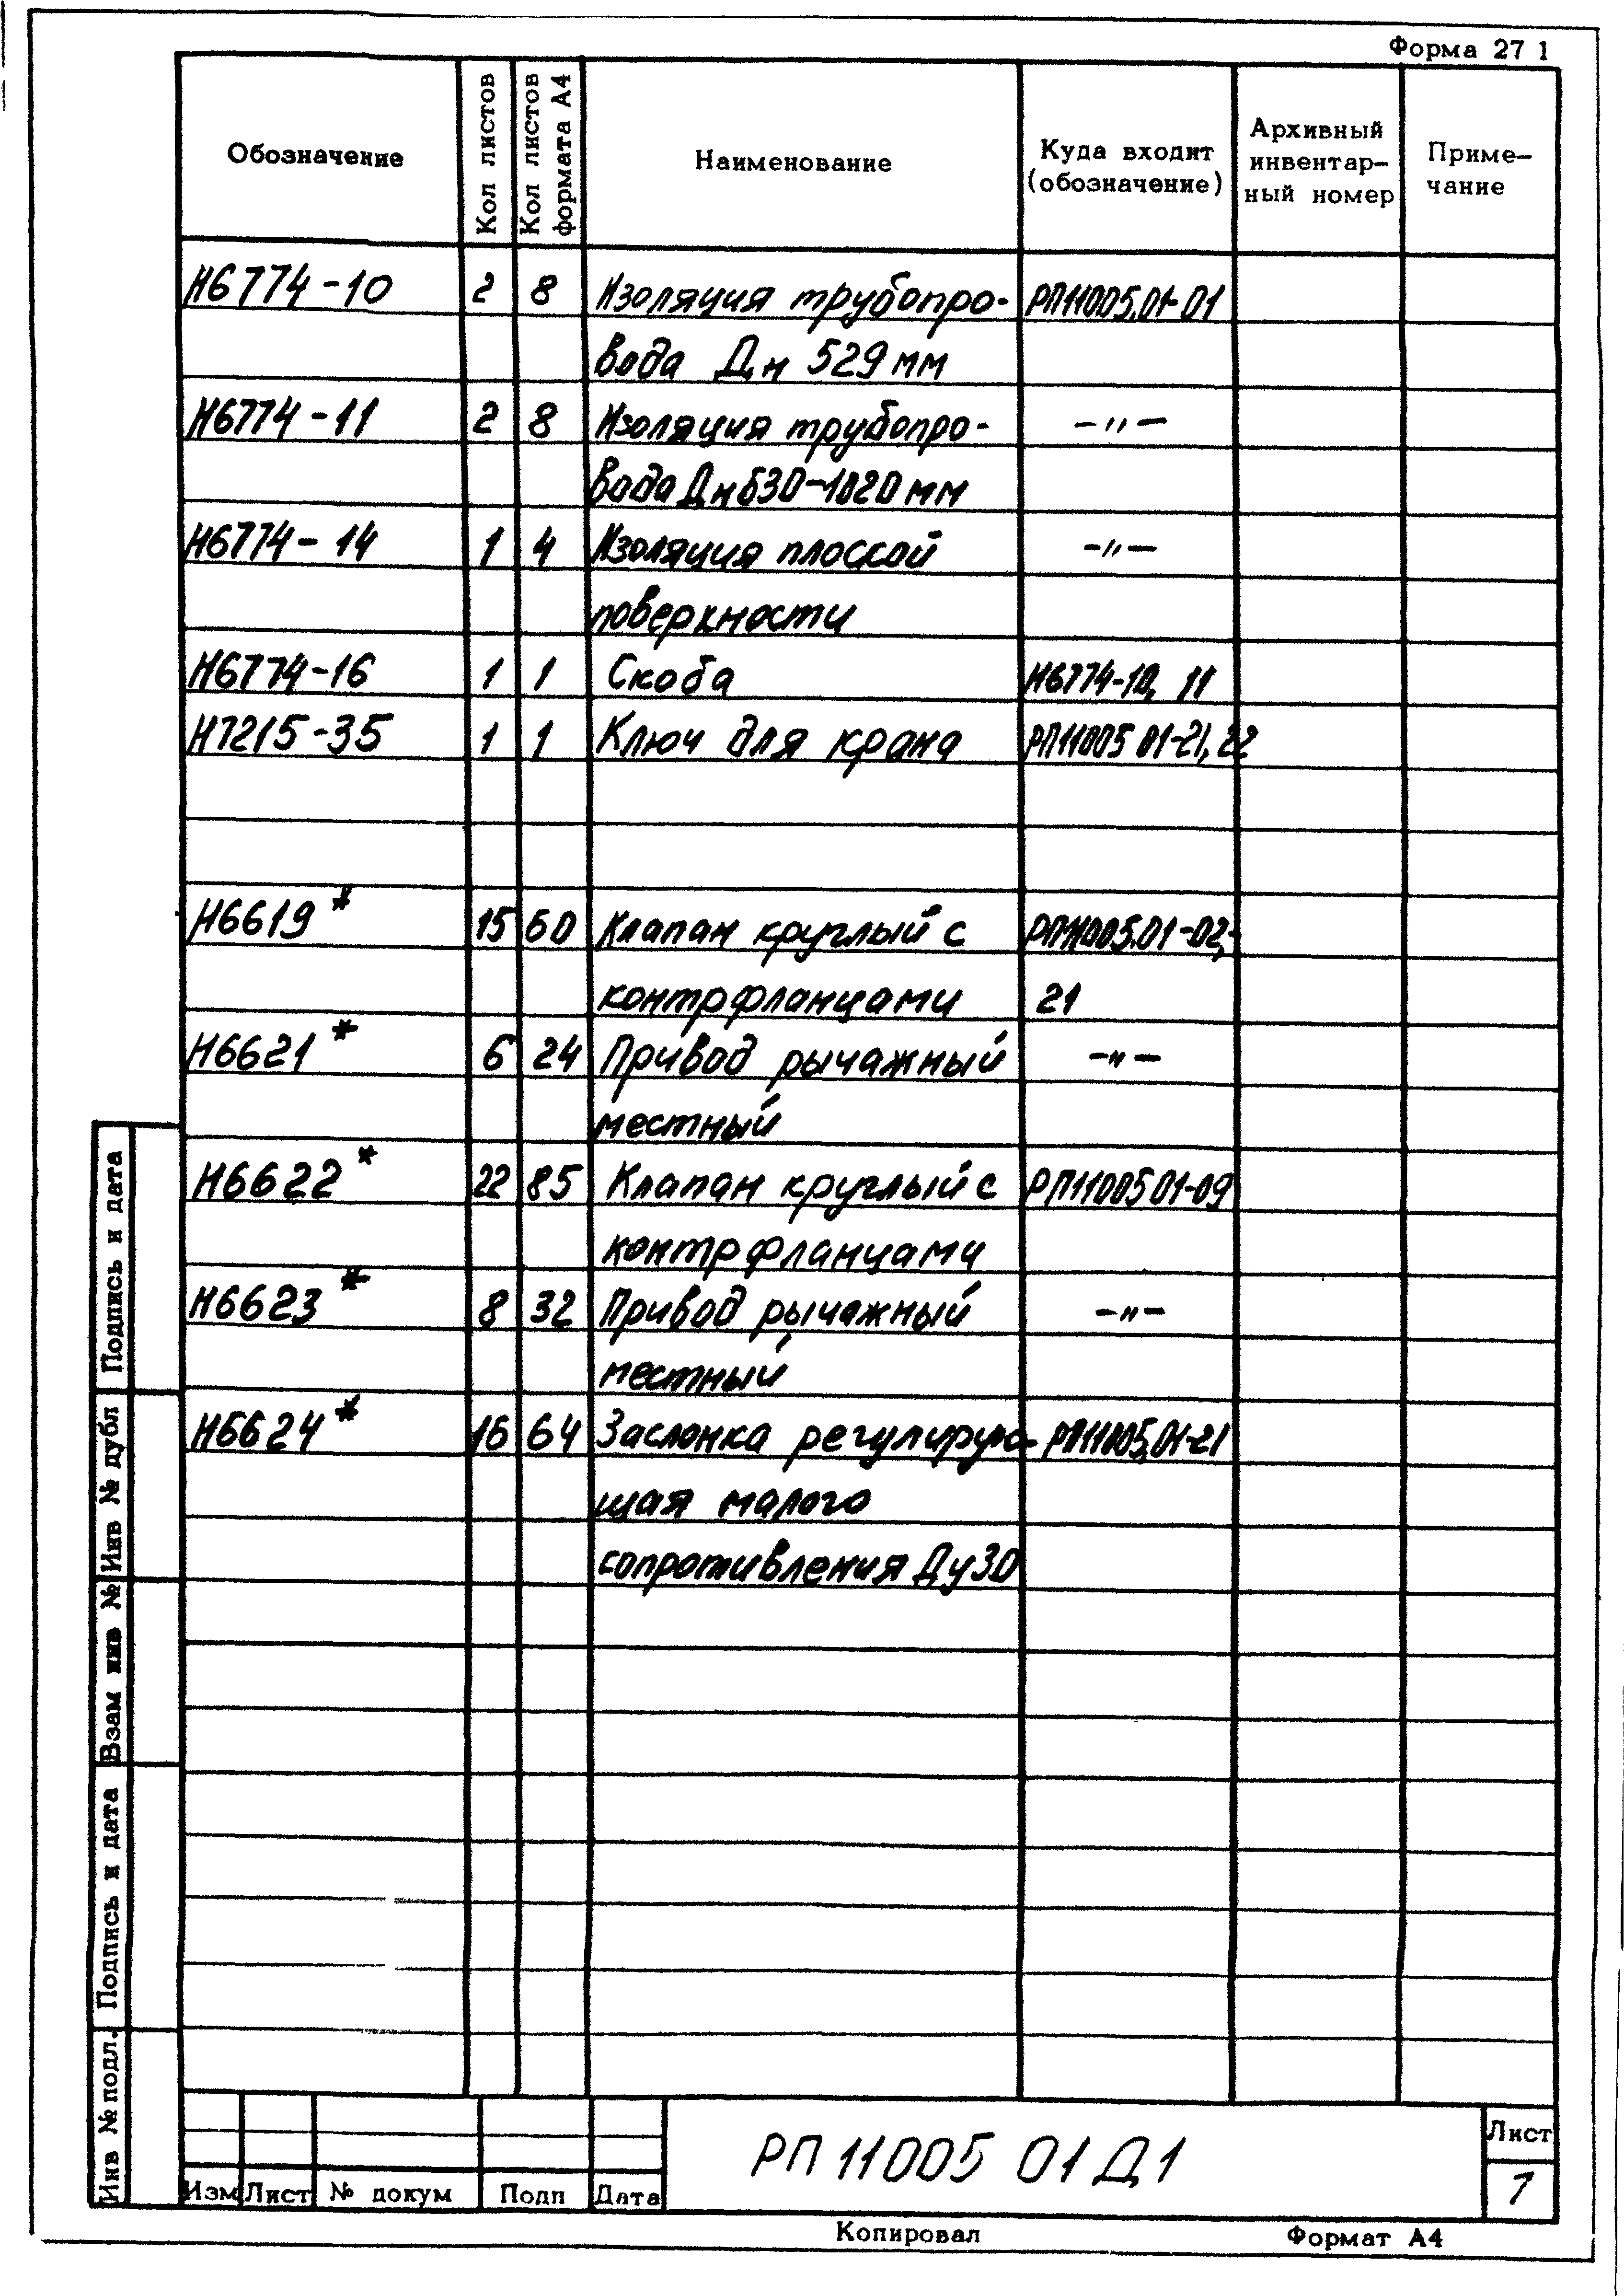 Форма 27 1
Обозначение
Кол листов
Кол листов
формата А4
Наименование
Куда входит
(обозначение)
Архивный
инвентар-
ный номер
Приме-
чание
Н6774-10 2 8 Изоляция трубопро- РП11005.01-01
вода Дн 529 мм
Н6774-11 2 8 Изоляция трубопро- -"-
вода Дн 630-1020 мм
Н6774-14 1 4 Изоляция плоской -"-
поверхности
Н6774-16 1 1 Скоба Н6774-10, 11
Н7215-35 1 1 Ключ для крана РП11005 01-21, 22
Н6619* 15 60 Клапан круглый с РП11005.01-02,
контрфланцами 21
Н6621* 6 24 Привод рычажный -"-
местный
Н6622* 22 85 Клапан круглый с РП11005 01-09
контрфланцами
Н6623* 8 32 Привод рычажный -"-
местный
Н6624* 16 64 Заслонка регулирую- РП11005.01-21
щая малого
сопротивления Ду30
Подпись и дата
Инв № дубл
Взам инв №
Подпись и дата
Инв № подл.
Изм Лист № докум Подп Дата
РП 11005 01 Д1
Лист
7
Копировал Формат А4